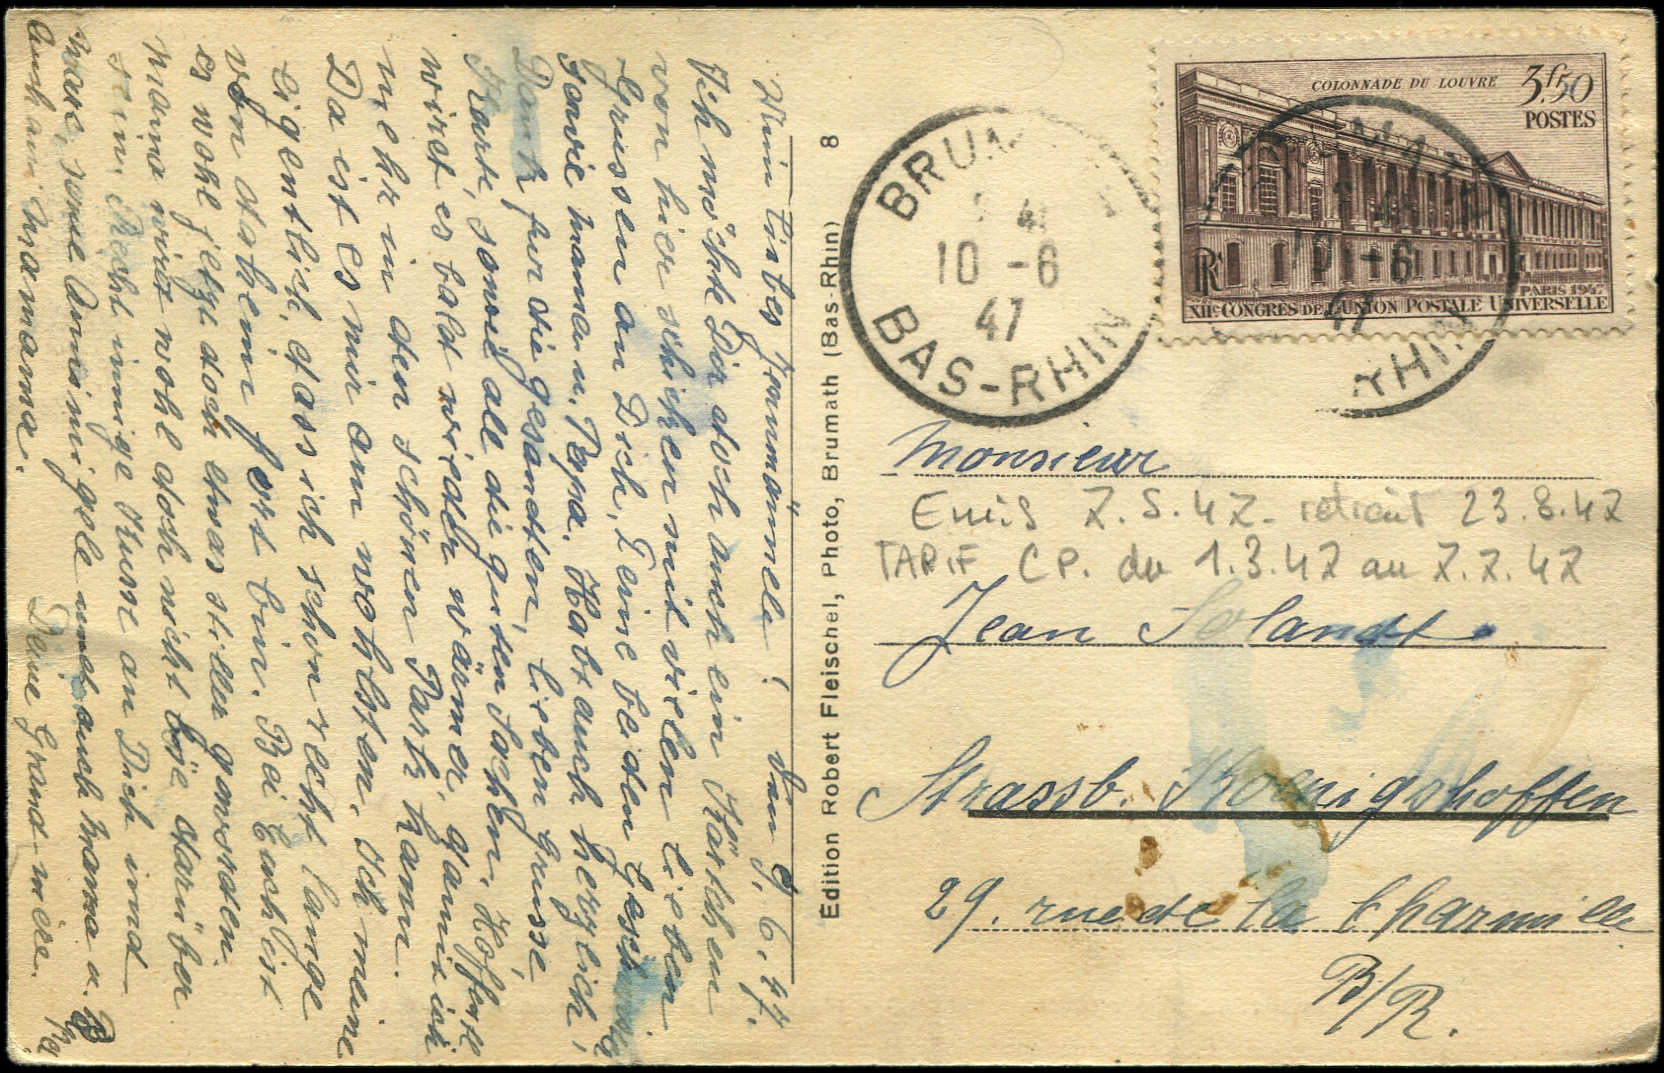 Mein liebes Jeanmännele! Den 9.6.47.
Ich möchte Dir doch auch ein Kärtchen
von hier schicken mit vielen lieben
Grüssen an Dich, Deine beiden
sowie maman u. Papa. Habt auch herzlich,
Dank fur die gesandten, lieben Grüsse
Karte, sowie all die guten Sachen. Hoffentl
wird es bald wieder wärmer, damit ich
mehr in den schönen Park kann.
Da ist es mir am wohlsten. Ich meine
eigentlich, dass ich schon recht lange
von daheim fort bin. Bei Euch ist
es wohl jetzt doch etwas stiller geworden.
mama wird wohl doch nicht böse darüber
sein. Recht innige Küsse an Dich und
sowie Annemigele und auch mama u.
auch an mamama. Deine Grand-mère.
Edition Robert Fleischel, Photo, Brumath (Bas-Rhin) 8
BRUMATH
10 -6
47
BAS-RHIN
COLONNADE DU LOUVRE 3f,50
POSTES
RF
PARIS 1947
XIIe CONGRES DE L'UNION POSTALE UNIVERSELLE
10 -6
47
RHIN
Monsieur
Emis 7.5.47 - retrait 23.8.47
TARIF CP. du 1.3.47 au 7.7.47
Jean Solandt
Strassb. Koenigshoffen
29. rue de la Charmille
B/R.